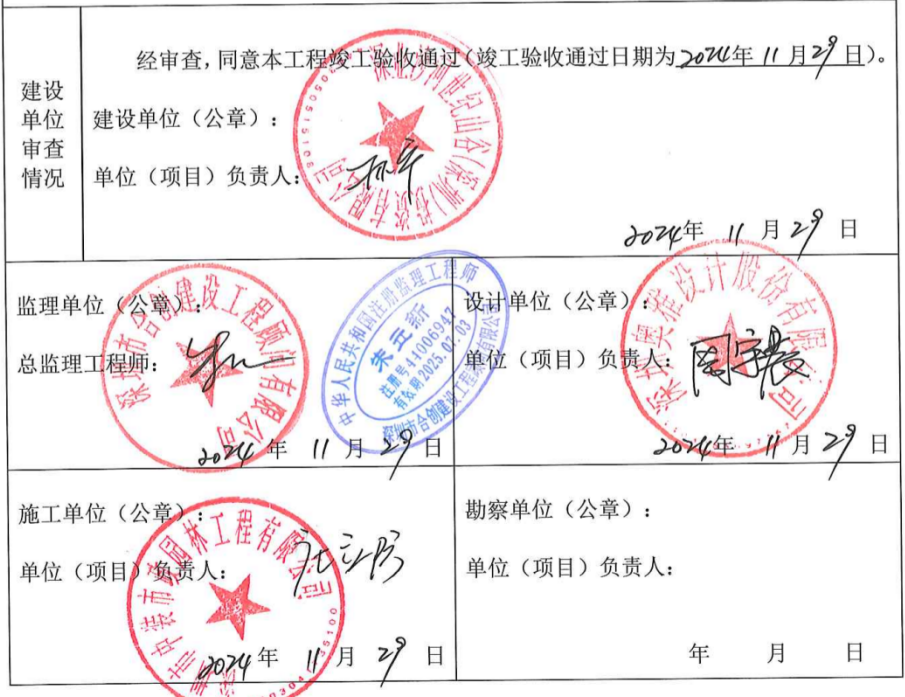 建设
单位
审查
情况
经审查，同意本工程竣工验收通过（竣工验收通过日期为2024年11月29日）。
建设单位（公章）：
单位（项目）负责人：
2024年 11 月 29 日
监理单位（公章）：
总监理工程师：
深圳市合创建设工程顾问有限公司
中华人民共和国注册监理工程师
朱立新
注册号44006947
有效期2025.07.03
深圳市合创建设工程顾问有限公司
2024 年 11 月 29 日
设计单位（公章）：
单位（项目）负责人：
深圳奥雅设计股份有限公司
2024年 11 月 29 日
施工单位（公章）：
单位（项目）负责人：
2024 年 11 月 29 日
勘察单位（公章）：
单位（项目）负责人：
年 月 日